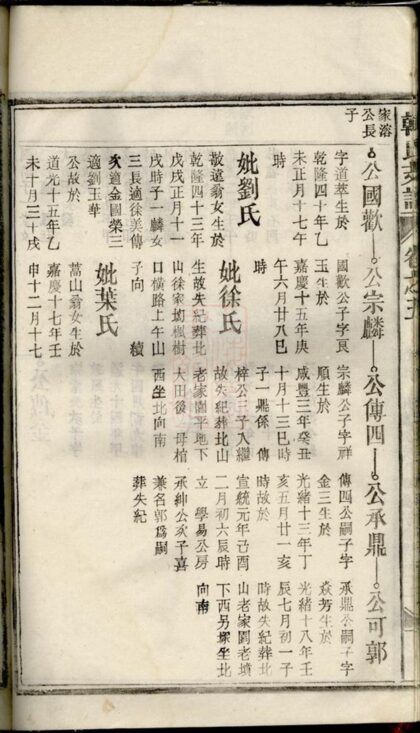 家溶
公長
子
公國歡
公宗麟
公傳四
公承鼎
公可郭
字道萃生於
乾隆四十年乙
未正月十七午
時
妣劉氏
敬遠翁女生於
乾隆四十三年
戊戌正月十一
戌時子一麟女
三長適徐美傳
次適金國榮三
適劉玉華
公故於
道光十五年乙
未十月三十戌
國歡公子字良
玉生於
嘉慶十五年庚
午六月廿八巳
時
妣徐氏
生故失紀葬北
山徐家坳楓樹
口橫路上午山
子向
續
妣葉氏
蒿山翁女生於
嘉慶十七年壬
申十二月十七
宗麟公子字祥
順生於
咸豐三年癸丑
十月十三巳時
子一鼎係傳
梓公子入繼
故失紀葬北山
老家園平地下
大田後母棺
西坐北向南
傳四公嗣子字
金三生於
光緒十三年丁
亥五月廿一亥
時故於
宣統元年己酉
二月初六辰時
立學易公房
承紳公次子喜
兼名郭爲嗣
葬失紀
承鼎公嗣子字
焱芳生於
光緒十八年壬
辰七月初一子
時故失紀葬北
山老家園老墳
下西另塚坐北
向南